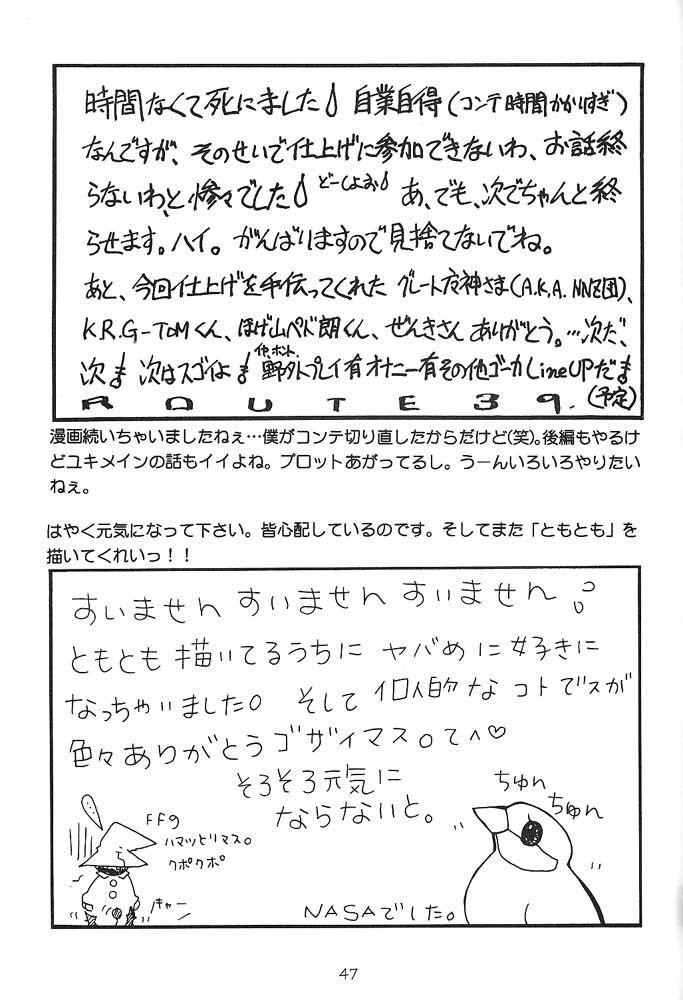 時間なくて死にました 自業自得(コンテ時間かかりすぎ)
なんですが、そのせいで仕上げに参加できないわ、お話終
らないわ、と惨々でした どーしよお あ、でも、次でちゃんと終
らせます。ハイ。がんばりますので見捨てないでね。
あと、今回仕上げを手伝ってくれた グレート 神さま(A.K.A. NNZ団)、
K.R.G-TOMくん、ほげ山ペド朗くん、ぜんきさん ありがとう。…次だ、
次 次はスゴイよ 野外プレイ有オナニー有その他ゴーカLineUPだ
(予定)
ROUTE39.
漫画続いちゃいましたねぇ…僕がコンテ切り直したからだけど(笑)。後編もやるけ
どユキメインの話もイイよね。プロットあがってるし。うーんいろいろやりたい
ねぇ。
はやく元気になって下さい。皆心配しているのです。そしてまた「ともとも」を
描いてくれいっ!!
すいません すいません すいません
ともとも描いてるうちに ヤバめに好きに
なっちゃいました。 そして 個人的な コトでスが
色々ありがとうゴザイマス。てへ♡
そろそろ元気に
ならないと。
ちゅん
ちゅん
FFの
ハマッとりマス。
クポクポ
キャー
NASAでした。
47